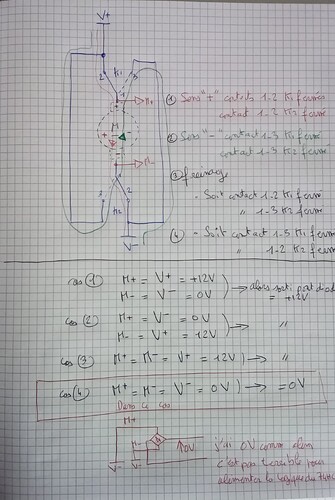 V+
K1
2
3
1
M+
M
M-
1
2
3
K2
V-
① Sens "+" contacts 1-2 K1 fermés
contact 1-2 K2 fermé
② Sens "-" contact 1-3 K1 fermé
contact 1-3 K2 fermé
③ freinage
- Soit contact 1-2 K1 fermé
" 1-3 K2 fermé
④ - Soit contact 1-3 K1 fermé
" 1-2 K2 fermé
cas ① M+ = V+ = +12V
M- = V- = 0V → alors sortie pont
= +12V
cas ② M+ = V- = 0V
M- = V+ = 12V → "
cas ③ M+ = M- = V+ = 12V → "
cas ④ M+ = M- = V- = 0V → = 0V
Dans ce cas
V-
V-
0V
j'ai 0V comme
c'est pas terrible pour
alimenter la logique du